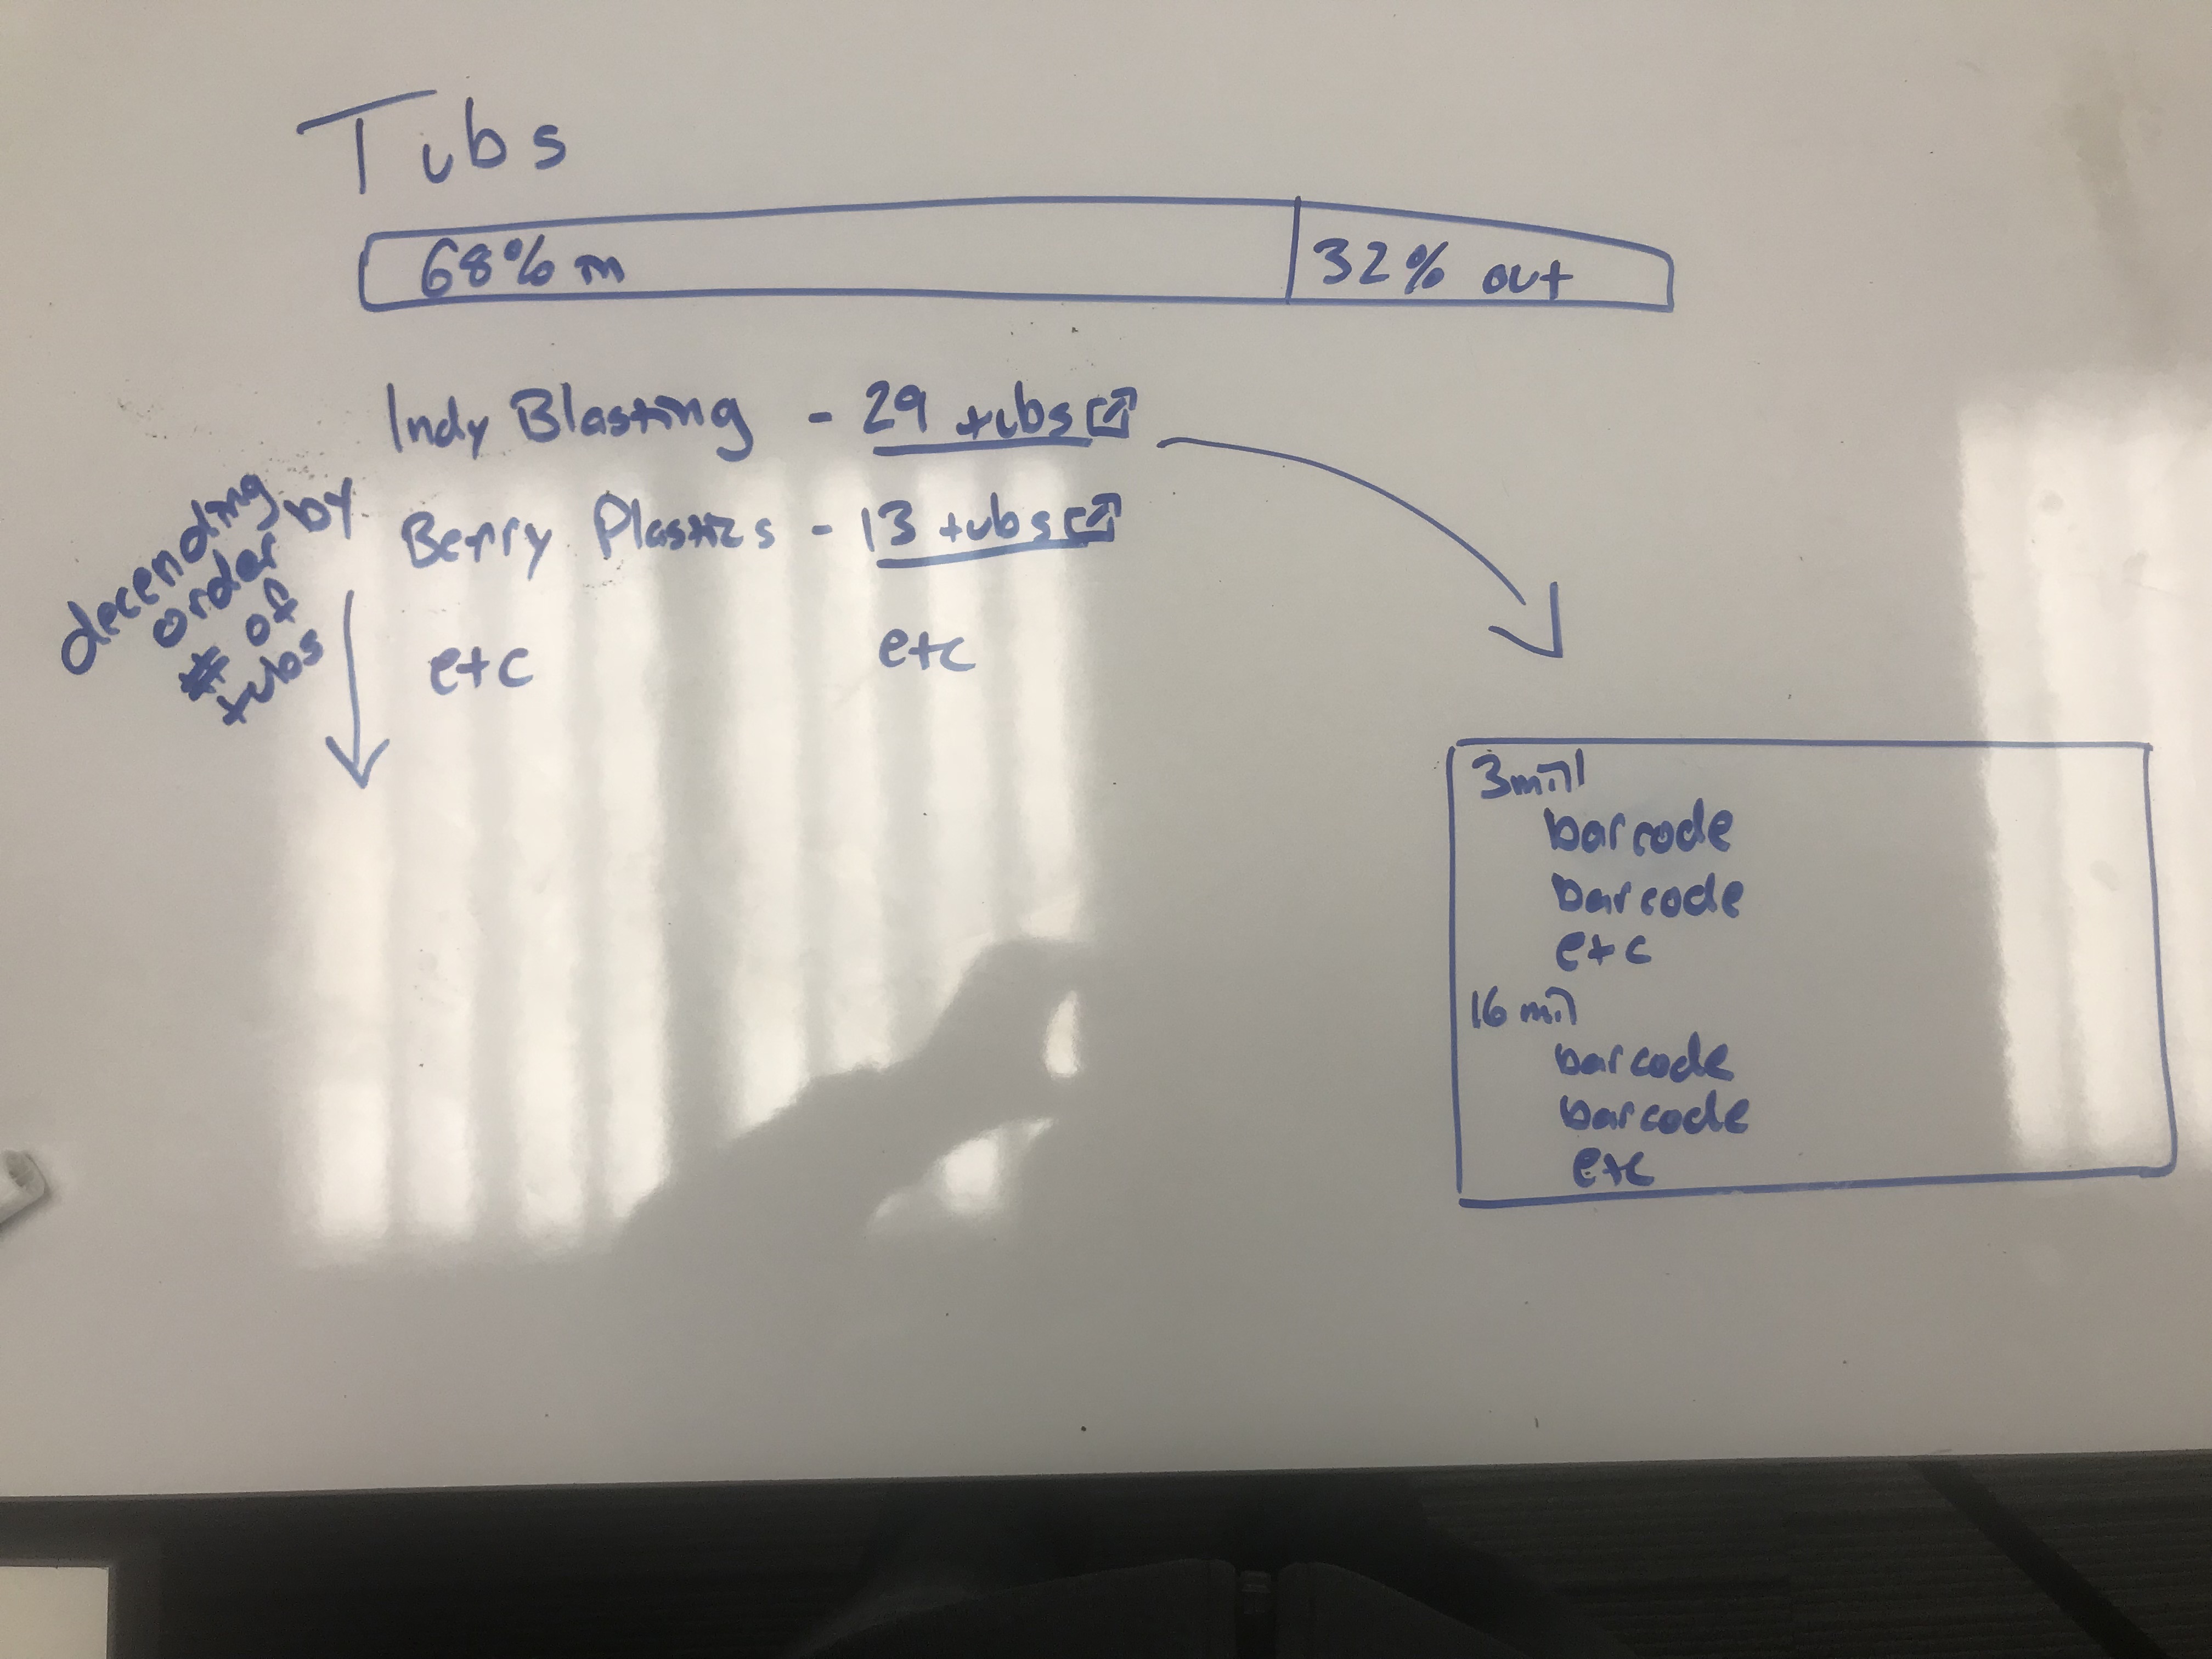 Tubs
68% in
32% out
Indy Blasting - 29 tubs
Berry Plastics - 13 tubs
etc etc
decending
order by
# of
tubs
3mil
barcode
barcode
etc
16 mil
barcode
barcode
etc